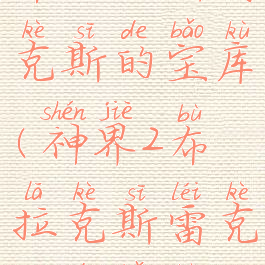 kè sī de bǎo kù
克斯的宝库
shén jiè bù
(神界2布
lā kè sī léi kè
拉克斯雷克